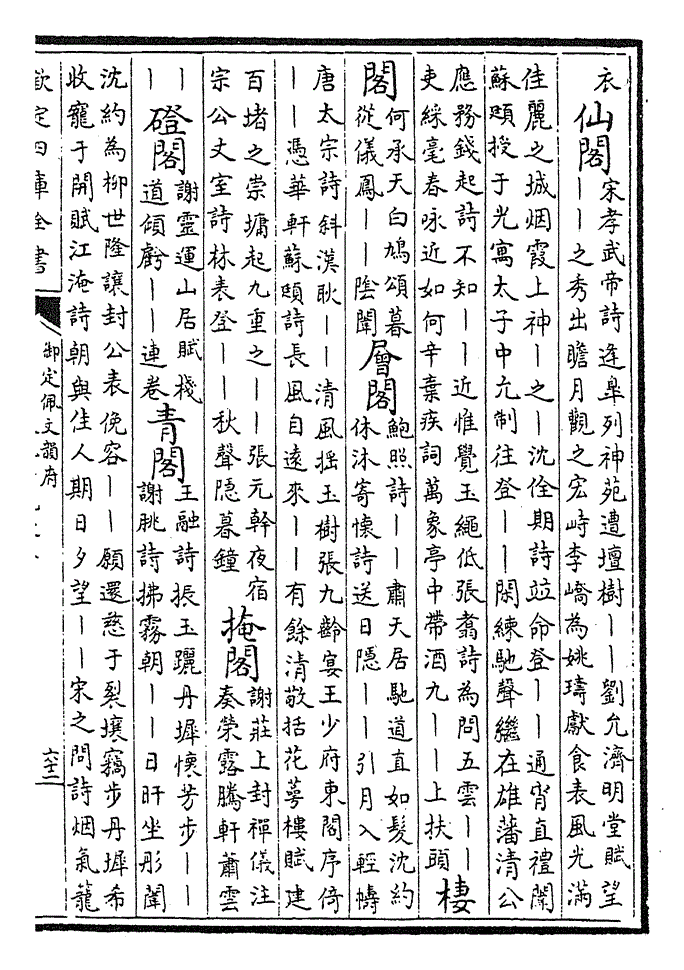 衣
仙閣
宋孝武帝詩逢臯列神苑遭壇樹——劉允濟明堂賦望
——之秀出瞻月觀之宏峙李嶠為姚璹獻食表風光滿
佳麗之城烟霞上神—之—沈佺期詩竝命登——通宵直禮闈
蘇頲授于光寓太子中允制往登——閑練馳聲繼在雄藩清公
應務錢起詩不知——近惟覺玉繩低張翥詩為問五雲——
吏綵毫春咏近如何辛棄疾詞萬象亭中帶酒九——上扶頭
棲
閣
何承天白鳩頌暮
從儀鳳——陰闈
層閣
鮑照詩——肅天居馳道直如髮沈約
休沐寄懷詩送日隱——引月入輕幬
唐太宗詩斜漢耿——清風揺玉樹張九齡宴王少府東閣序倚
——憑華軒蘇頲詩長風自遠來——有餘清敬括花萼樓賦建
百堵之崇墉起九重之——張元幹夜宿
宗公丈室詩林表登——秋聲隠暮鐘
掩閣
謝莊上封禪儀注
奏榮露騰軒蕭雲
——
磴閣
謝靈運山居賦棧
道傾虧——連卷
青閣
王融詩振玉躧丹墀懷芳步——
謝朓詩拂霧朝——日旰坐彤闈
沈約為柳世隆讓封公表俛容——願還慈于裂壤竊步丹墀希
收寵于開賦江淹詩朝與佳人期日夕望——宋之問詩烟氣籠
欽定四庫全書
御定佩文韻府
六十二